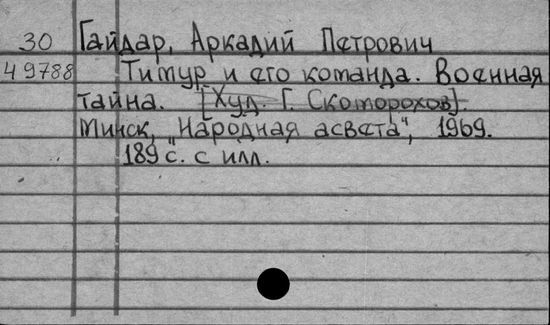 30 Гайдар, Аркадий Петрович
49788 Тимур и его команда. Военная
тайна. [Худ. Г. Скоморохов].
Минск, "Народная асвета", 1969.
189 с. с илл.